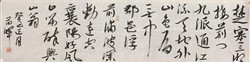 楚塞三湘
接荆门
九派通江
流天地外
山色有
無中
郡邑浮
前浦波瀾
動遠空
襄陽好風
日留醉與
山翁